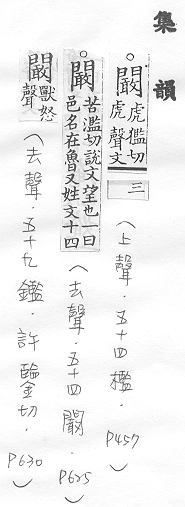 集韻
○闞虎檻切虎聲文三
(上聲．五十四檻．P457)
○闞苦濫切說文望也一曰邑名在魯又姓文十四
(去聲．五十四闞．P625)
闞獸怒聲
(去聲．五十九鑑．許鑑切．P630)